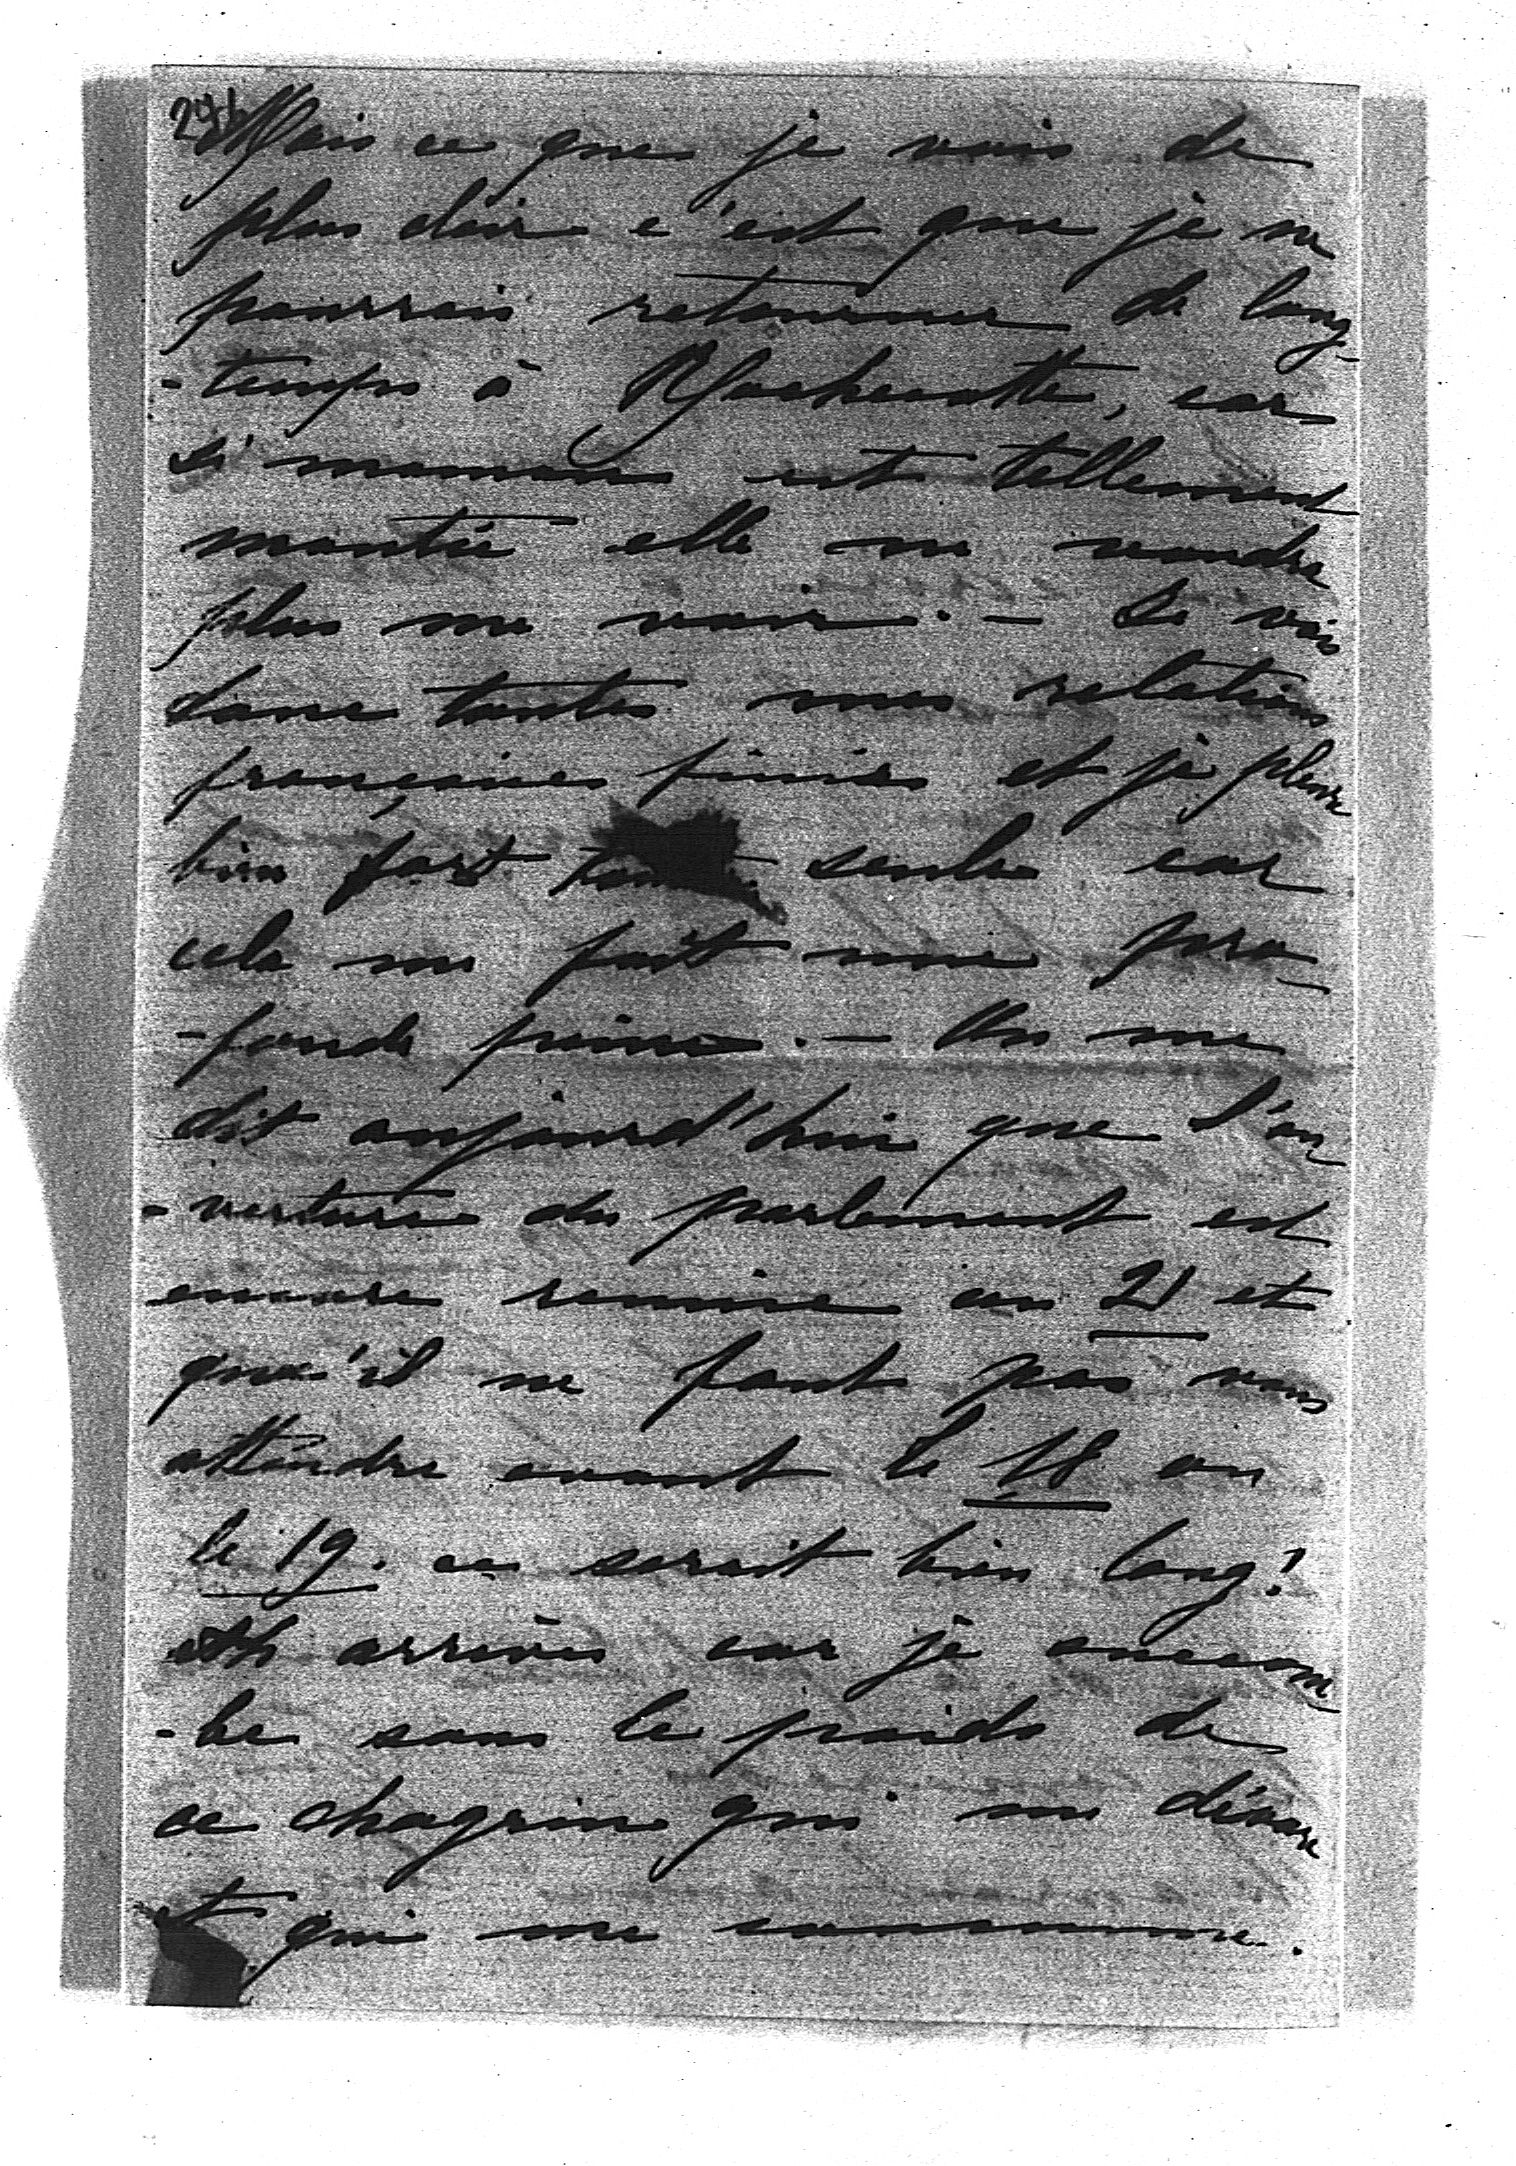 Mais ce que je vois de
plus clair c'est que je ne
pourrais retourner de long
-temps à, car
si maman est tellement
montée elle ne voudra
plus me voir. — Je vois
donc toutes mes relations
françaises finies et je pleure
bien fort seule car
cela me fait une pro-
-fonde peine. — On me
dit aujourd'hui que l'ou
-verture du parlement est
encore remise au 21 et
que'il ne faut pas vous
attendre avant le 18 ou
le 19. ce serait bien long!
Ah arrivez car je succom
-be sous le poids de
ce chagrin qui me dévore
et qui me consumme.